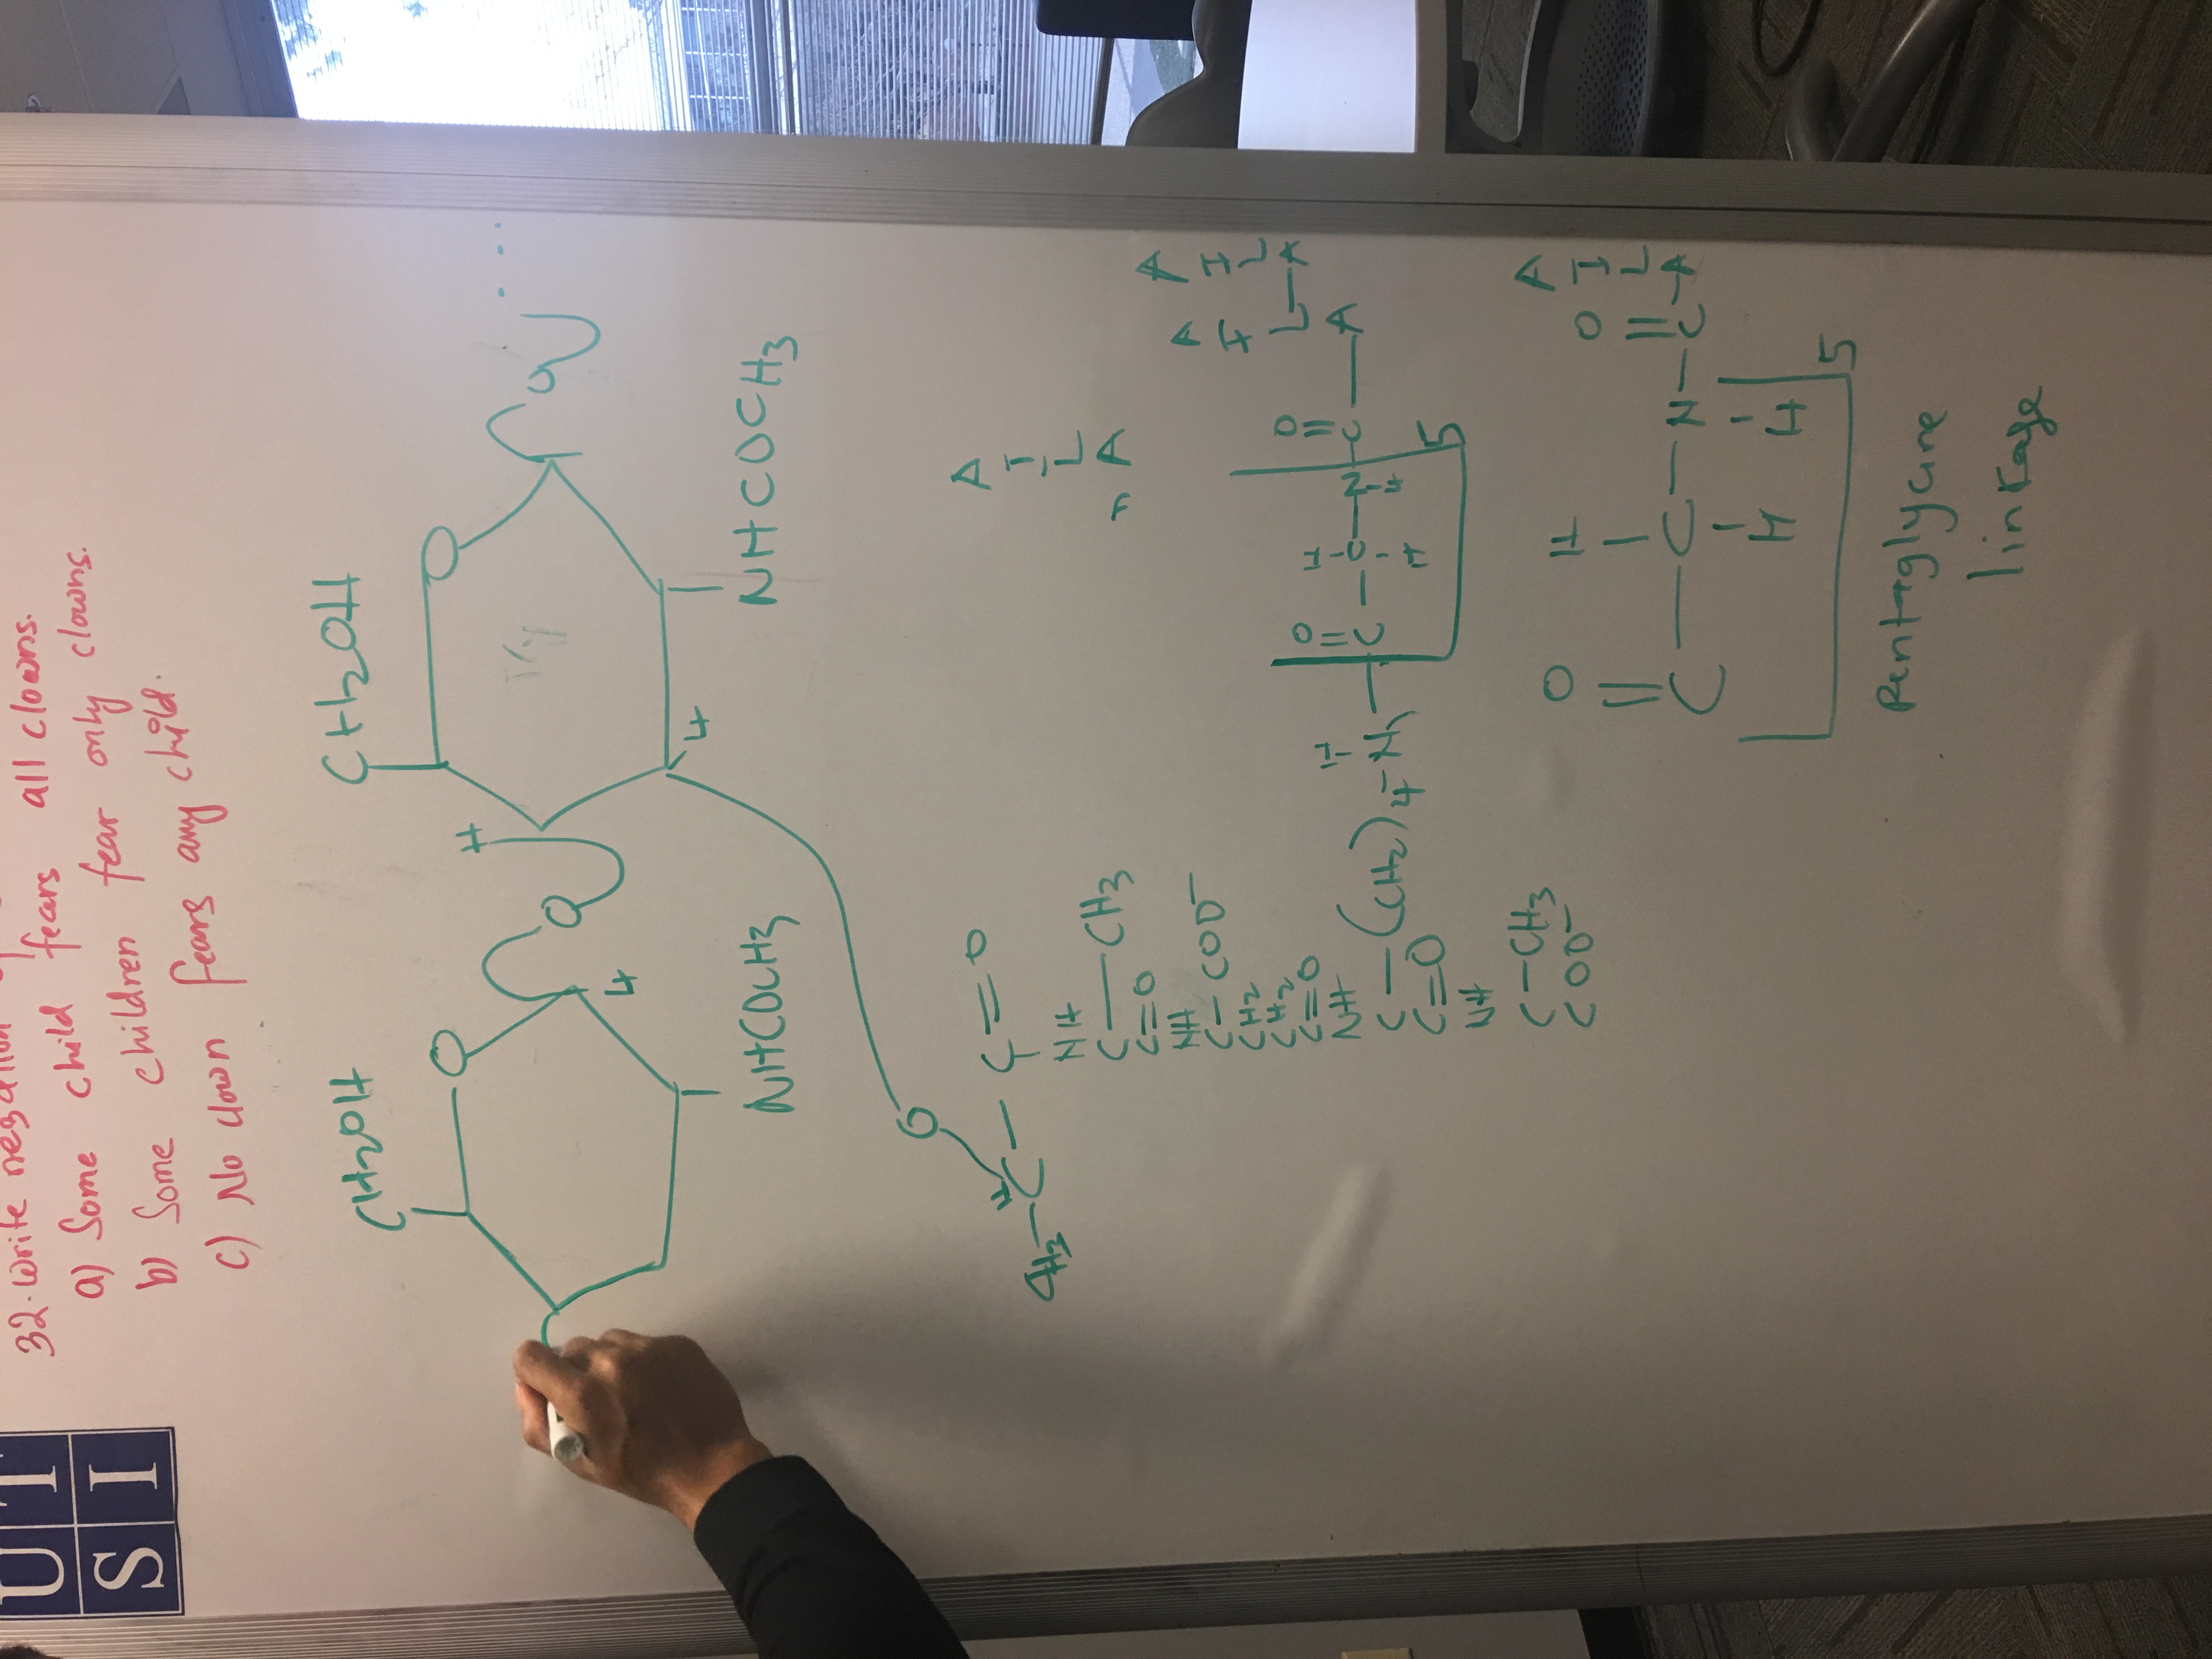 U T
S I
32. Write negation
a) Some child fears all clowns.
b) Some children fear only clowns.
c) No clown fears any child.
CH2OH
CH2OH
O
O
H
O
O
....
4
4
NHCOCH3
NHCOCH3
O
CH3 — C — C = O
H
NH
C — CH3
C=O
NH
C — COO⁻
CH2
CH2
C=O
NH
C — (CH2)4 — N — C — C — N — C — A
H
O
H
H
H
O
5
C=O
NH
C — CH3
COO⁻
A
I
L
A
A
I
L — A
A
I
L
O H O
C — C — N — C — A
H H
5
A
I
L
Pentaglycine
linkage